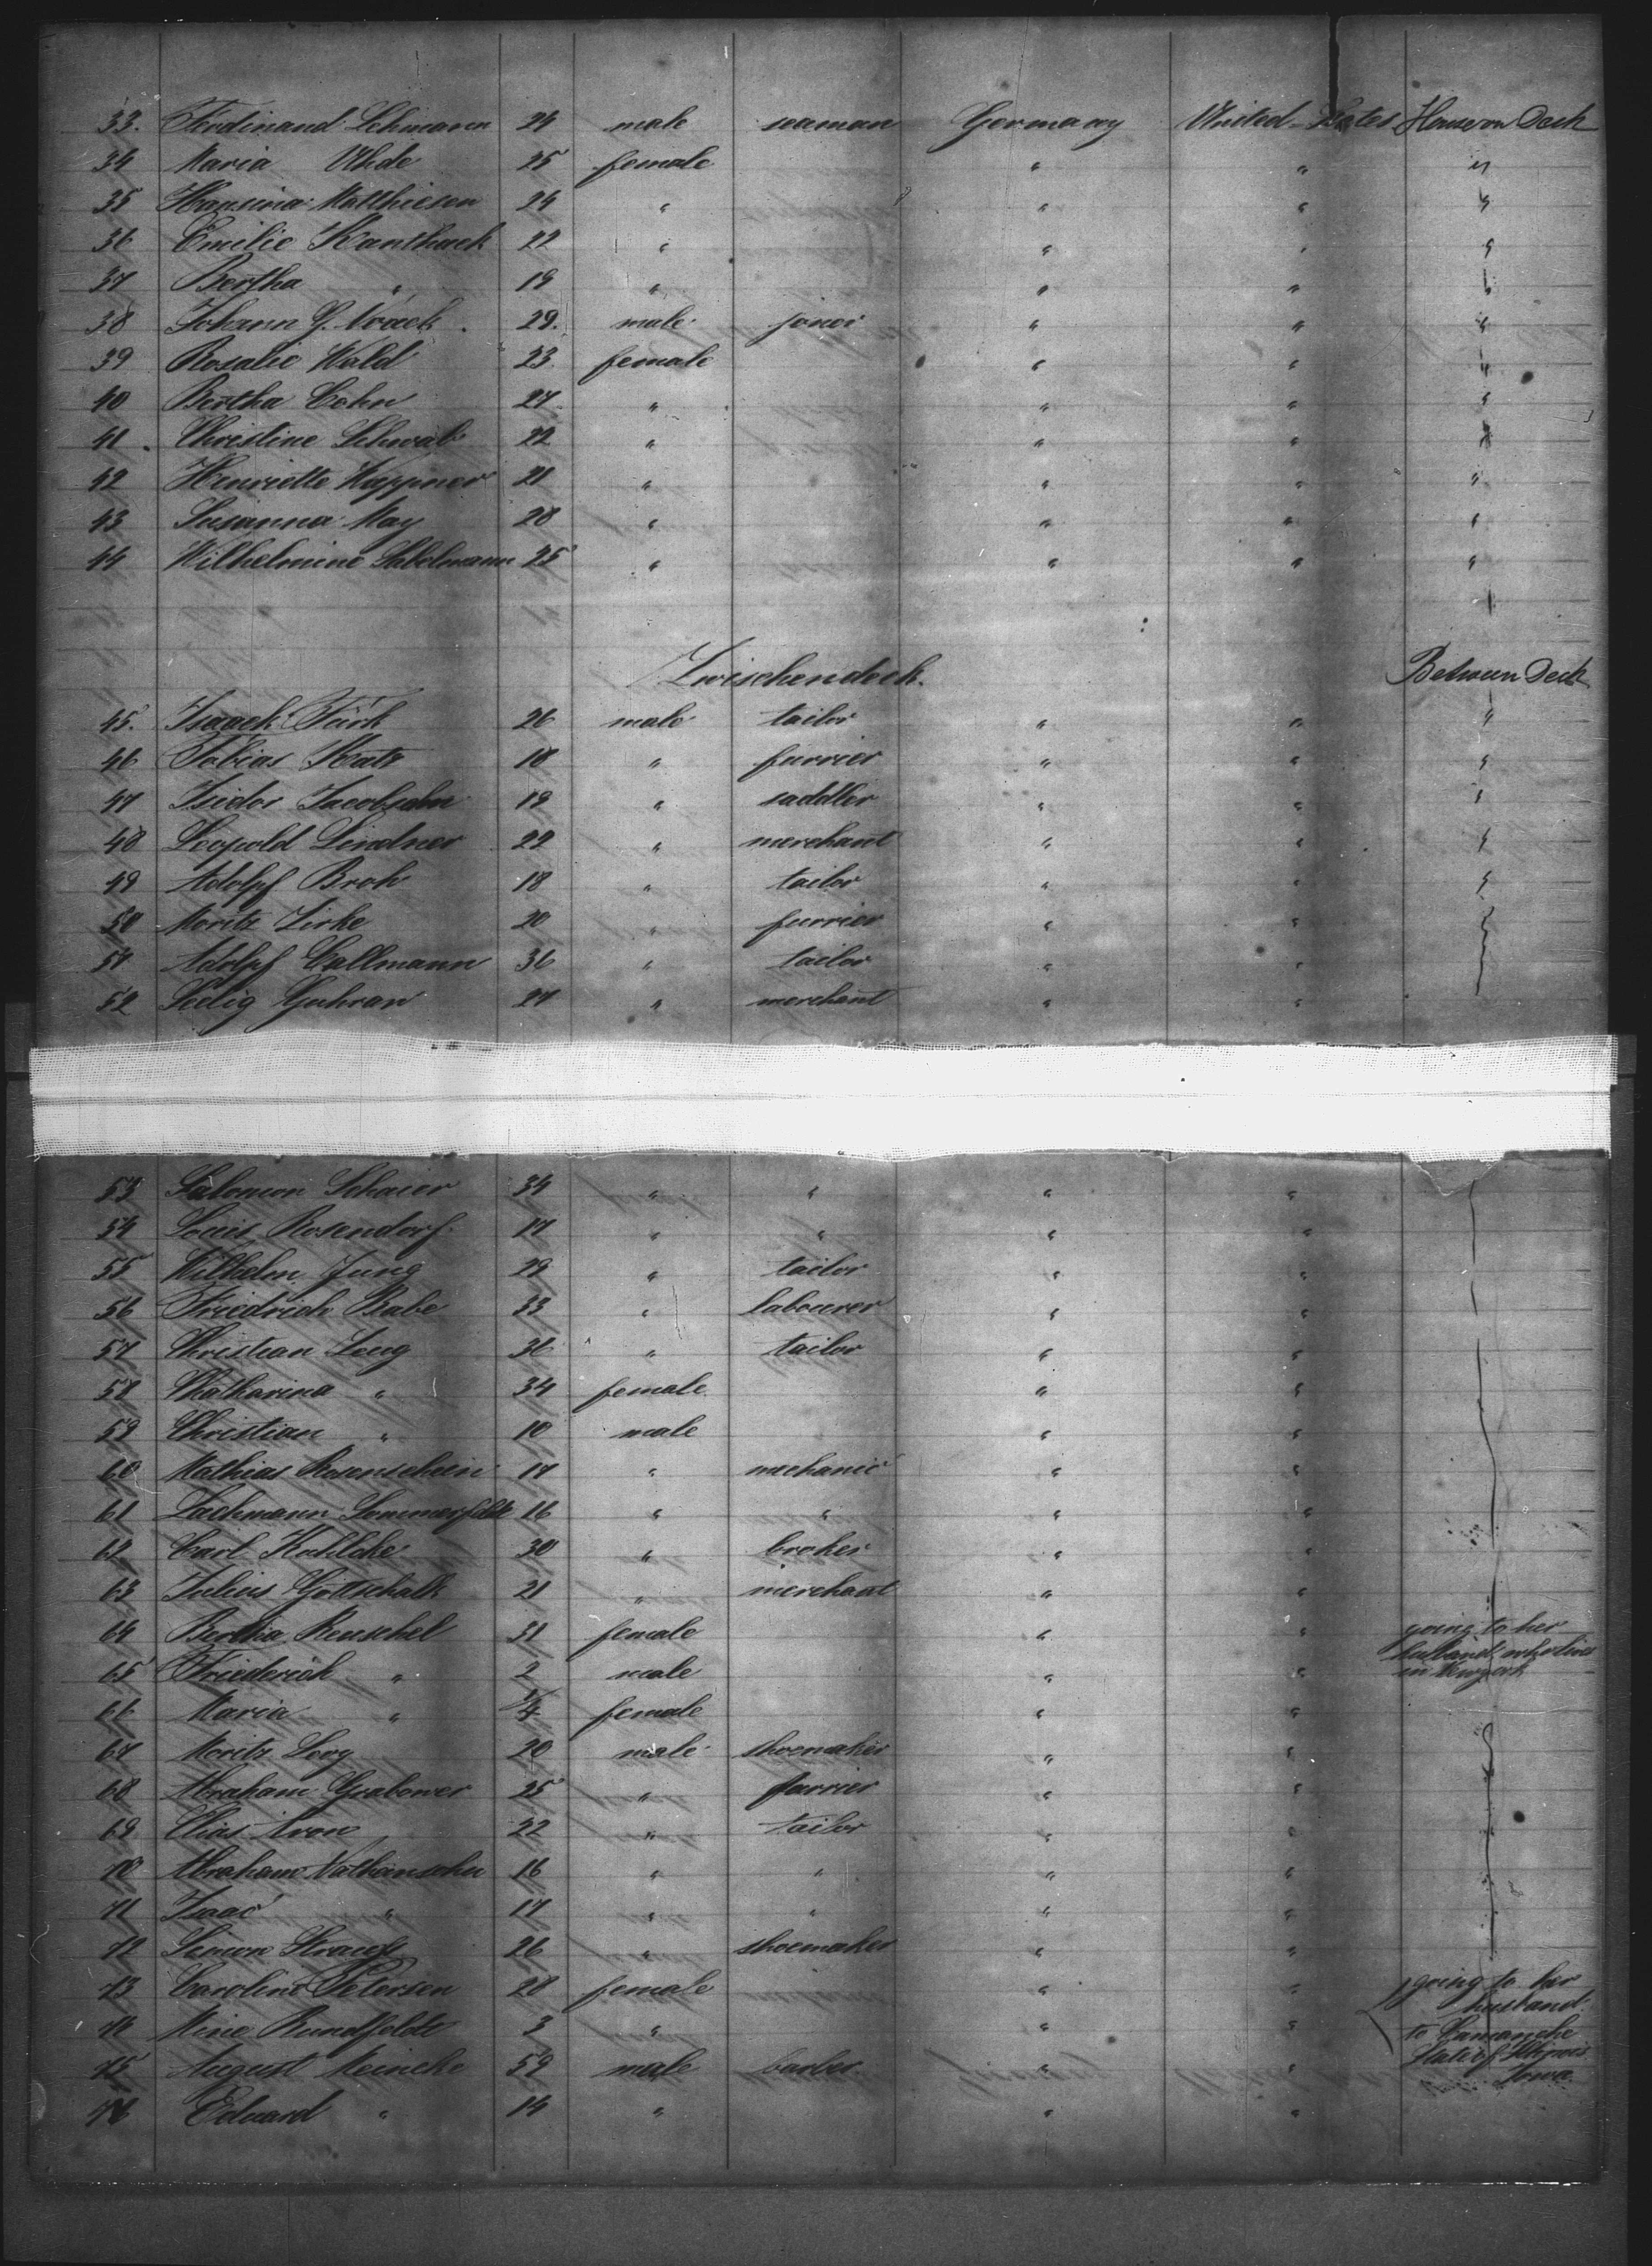 33. Ferdinand Lehmann 24 male seaman Germany United States House on Deck
34 Maria Uhde 25 female " " "
35 Hansina Matthiesen 24 " " " "
36 Emilie Kanthack 22 " " " "
37 Bertha " 19 " " " "
38 Johann G. Noack 29. male joner " " "
39 Rosalie Wald 23 female " " "
40 Bertha Cohn 27 " " " "
41 Christine Schwab 22 " " " "
42 Henriette Wappner 21 " " " "
43 Susanna May 28 " " " "
44 Wilhelmine Stabelmann 25 " " " "
Zwischendeck. Between Deck
45. Isaack Türk 26 male tailor " " "
46 Tobias Katz 18 " furrier " " "
47 Isidor Jacobsohn 19 " saddler " " "
48 Leopold Lindner 22 " merchant " " "
49 Adolpf Broh 18 " tailor " " "
50 Moritz Zirke 20 " furrier " "
51 Adolpf Callmann 36 " tailor " "
52 Selig Guhran 27 " merchant " "
53 Salomon Schaier 34 " " " "
54 Louis Rosendorf 17 " " " "
55 Wilhelm Jung 29 " tailor " "
56 Friedrich Rabe 33 " labourer " "
57 Christian Leug 36 " tailor " "
58 Khatharina " 34 female " "
59 Christian " 10 male " "
60 Mathias Rosenschein 17 " mechanic " "
61 Lachmann Sommerfeldt 16 " " " "
62 Carl Kahlcke 30 " broker " "
63 Julius Gottschalk 21 " merchant " "
64 Bertha Reuschel 31 female " " going to her
65 Friederich " 2 male " " husband who lives in Newyork
66 Maria " 3/4 female " "
67 Moritz Levy 20 male shoemaker " "
68 Abraham Grabower 25 " furrier " "
69 Elias Aron 22 " tailor " "
70 Abraham Nathansohn 16 " " " "
71 Isaac " 17 " " " "
72 Simon Strauss 26 " shoemaker " "
73 Caroline Petersen 28 female " " going to her husband
74 Mine Rundfeldt 3 " " " to Camanche
75 August Meincke 59 male barber " " State of Illinois Iowa
76 Eduard " 14 " " "